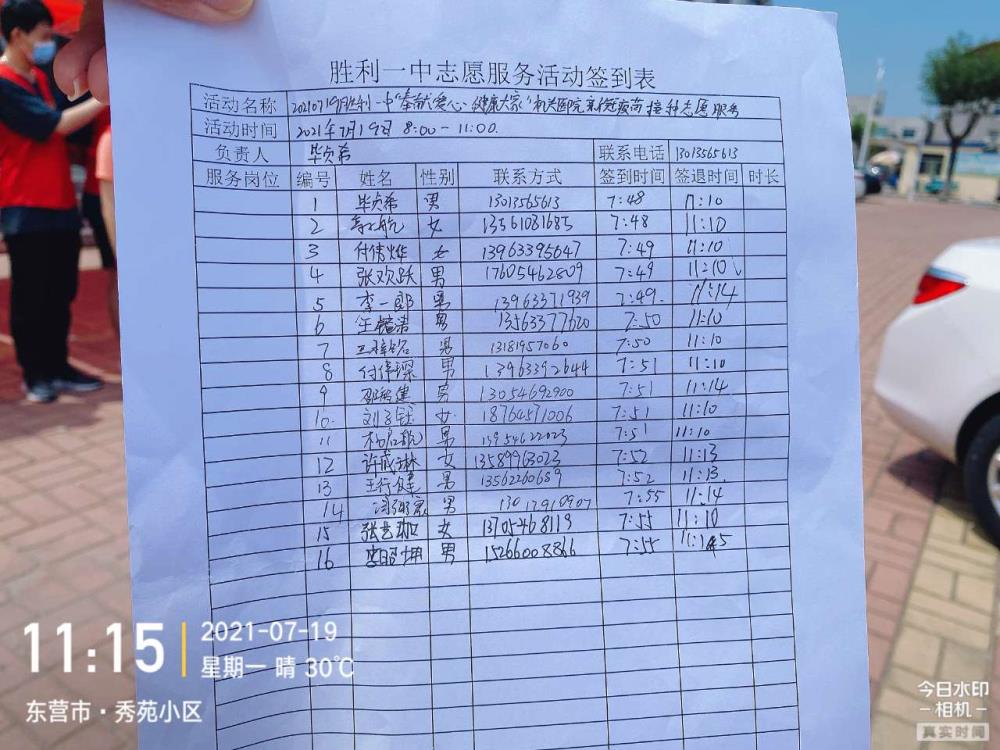 胜利一中志愿服务活动签到表
活动名称 20210719胜利一中"奉献爱心、健康大家"机关医院新冠疫苗接种志愿服务
活动时间 2021年7月19日 8:00-11:00
负责人 毕贞希 联系电话 13013565613
服务岗位 编号 姓名 性别 联系方式 签到时间 签退时间 时长
1 毕贞希 男 13013565613 7:48 11:10
2 女 13561081685 7:48 11:10
3 付倩烨 女 13963395647 7:49 11:10
4 张欢跃 男 17605462809 7:49 11:10
5 李一郎 男 13963371939 7:49 11:14
6 男 13563377620 7:50 11:10
7 男 13181957060 7:50 11:10
8 付伟琛 男 13963392644 7:51 11:10
9 男 13054692900 7:51 11:14
10 刘子钰 女 18764571006 7:51 11:10
11 男 7:51 11:10
12 女 13589963023 7:52 11:13
13 王行健 男 13562260689 7:52 11:13
14 男 7:55 11:14
15 女 13705468119 7:55 11:10
16 男 15266008866 7:55
11:15
2021-07-19
星期一 晴 30℃
东营市·秀苑小区
今日水印
相机
真实时间